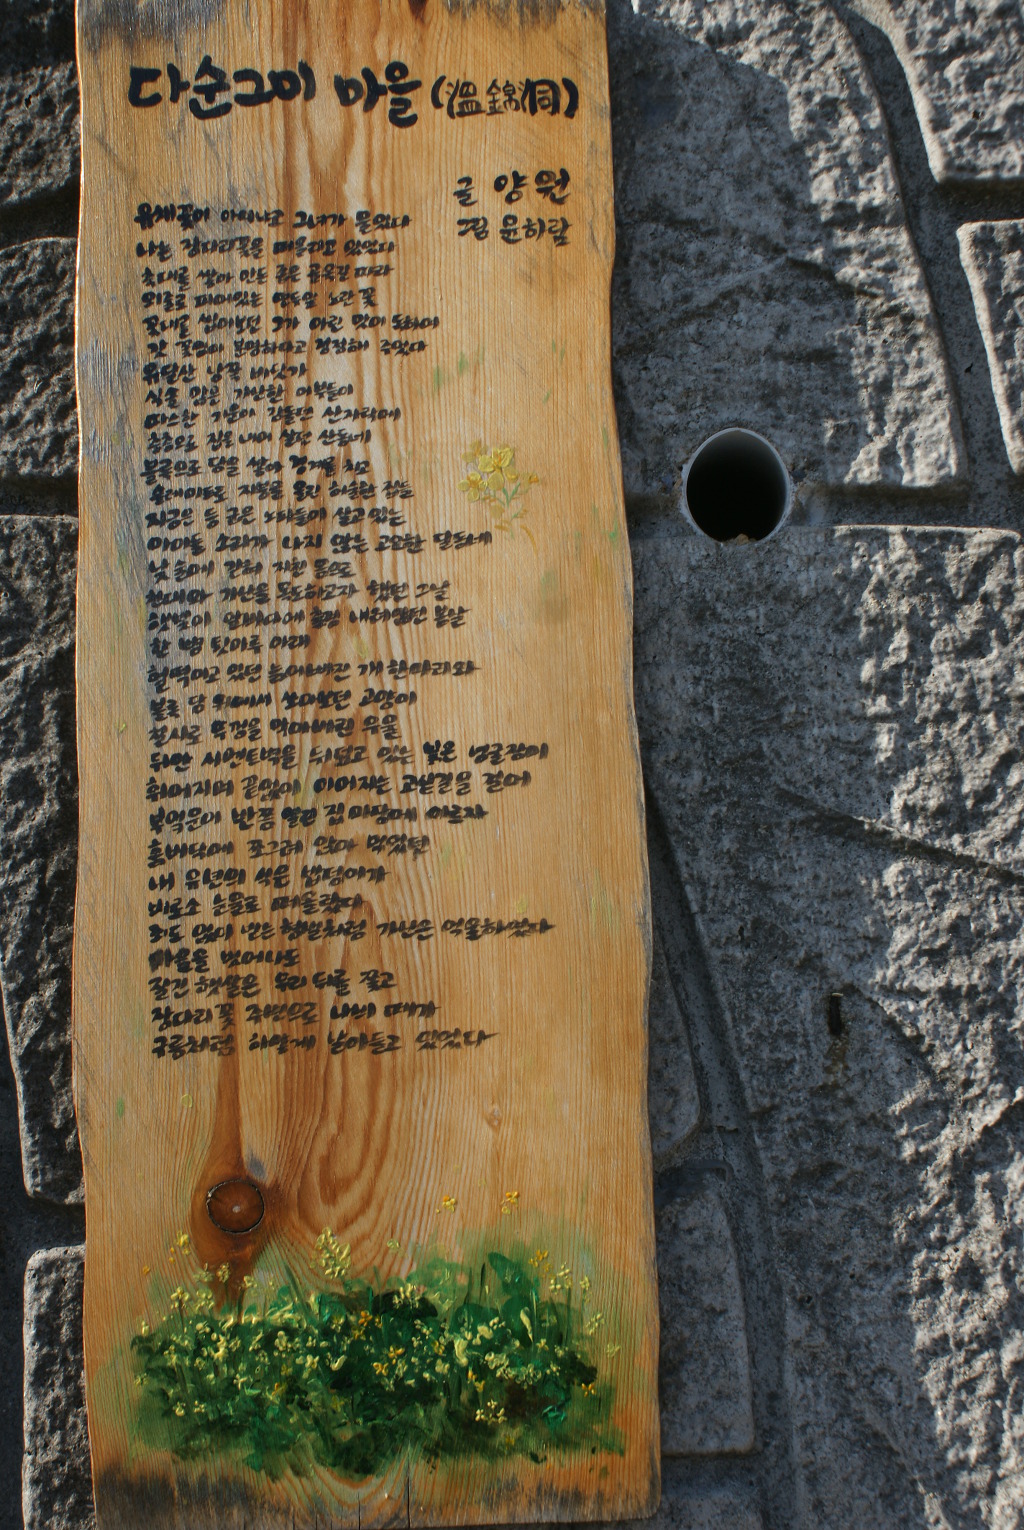 다순그미 마을 (溫錦洞)
글 양원
그림 윤하람
유채꽃이 아시냐고 그녀가 물었다
나는 장다리꽃을 떠올리고 있었다
돌 쌓아 만든 좁은 골목길 따라
외롭로 피어있는 연두빛 노란 꽃
꽃대를 씹어보던 그가 아린 맛이 독하여
갓 꽃임이 분명하다고 정정해 주었다
유달산 남쪽 바닷가
가난한 어부들이
따스한 기운이 감돌던 산자락에
층층으로 집을 내어 살던 산동네
블록으로 담을 쌓아 경계를 치고
슬레이트로 지붕을 올린 허술한 집들
지금은 등 굽은 노인들이 살고 있는
아이들 소리가 나지 않는 고요한 달동네
낯 몸으로
가난을 독도하고자 했던 그날
햇볕이 앞바다에 내려앉던 봄날
한 뼘 툇마루 아래
헐떡이고 있던 늙어빠진 개 한마리와
블록 담 위에서 쏘아보던 고양이
철사로 뚜껑을 엮어버린 우물
뒤안 시멘트벽을 뒤덮고 있는 넝쿨장미
휘어지며 끝없이 이어지는 고샅길을 걸어
부엌문이 반쯤 열린 집 마당에 이르자
흙바닥에 쪼그려 앉아 먹었던
내 유년의 식은 밥덩어가
비로소 눈물로 떠올랐다
죄도 없이 받는 형벌처럼 가난은 억울하였다
마을을 벗어나도
질긴 햇살은 우리 뒤를 쫓고
장다리꽃 주변으로 나비 떼가
구름처럼 하얗게 날아들고 있었다